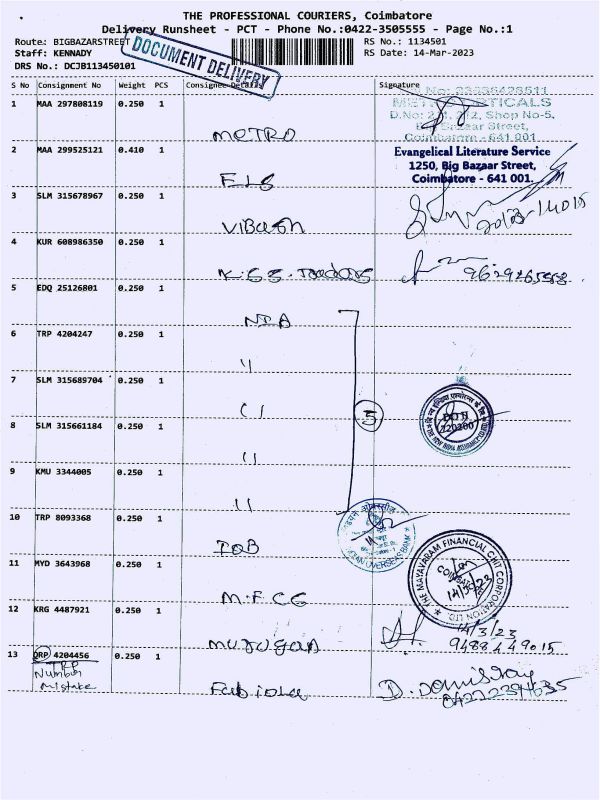 THE PROFESSIONAL COURIERS, Coimbatore
Delivery Runsheet - PCT - Phone No.:0422-3505555 - Page No.:1
Route: BIGBAZARSTREET
RS No.: 1134501
Staff: KENNADY
RS Date: 14-Mar-2023
DRS No.: DCJB113450101
DOCUMENT DELIVERY
S No Consignment No Weight PCS Consignee Details Signature
1 MAA 297808119 0.250 1
METRO
D.No: Shop No-5,
Bazaar Street,
Coimbatore - 641 001
2 MAA 299525121 0.410 1
ELS
Evangelical Literature Service
1250, Big Bazaar Street,
Coimbatore - 641 001.
3 SLM 315678967 0.250 1
4 KUR 608986350 0.250 1
K.S.S. Traders
5 EDQ 25126801 0.250 1
NIA
6 TRP 4204247 0.250 1
"
7 SLM 315689704 0.250 1
"
8 SLM 315661184 0.250 1
"
9 KMU 3344005 0.250 1
"
5
10 TRP 8093368 0.250 1
IOB
INDIAN OVERSEAS BANK
11 MYD 3643968 0.250 1
M.F.CC
THE MAYAVARAM FINANCIAL CHIT CORPORATION LTD.
COIMBATORE
14/3/23
12 KRG 4487921 0.250 1
murugan
14/3/23
9488449015
13 QRP 4204456 0.250 1
TRP
Number
mistake
Fabiola